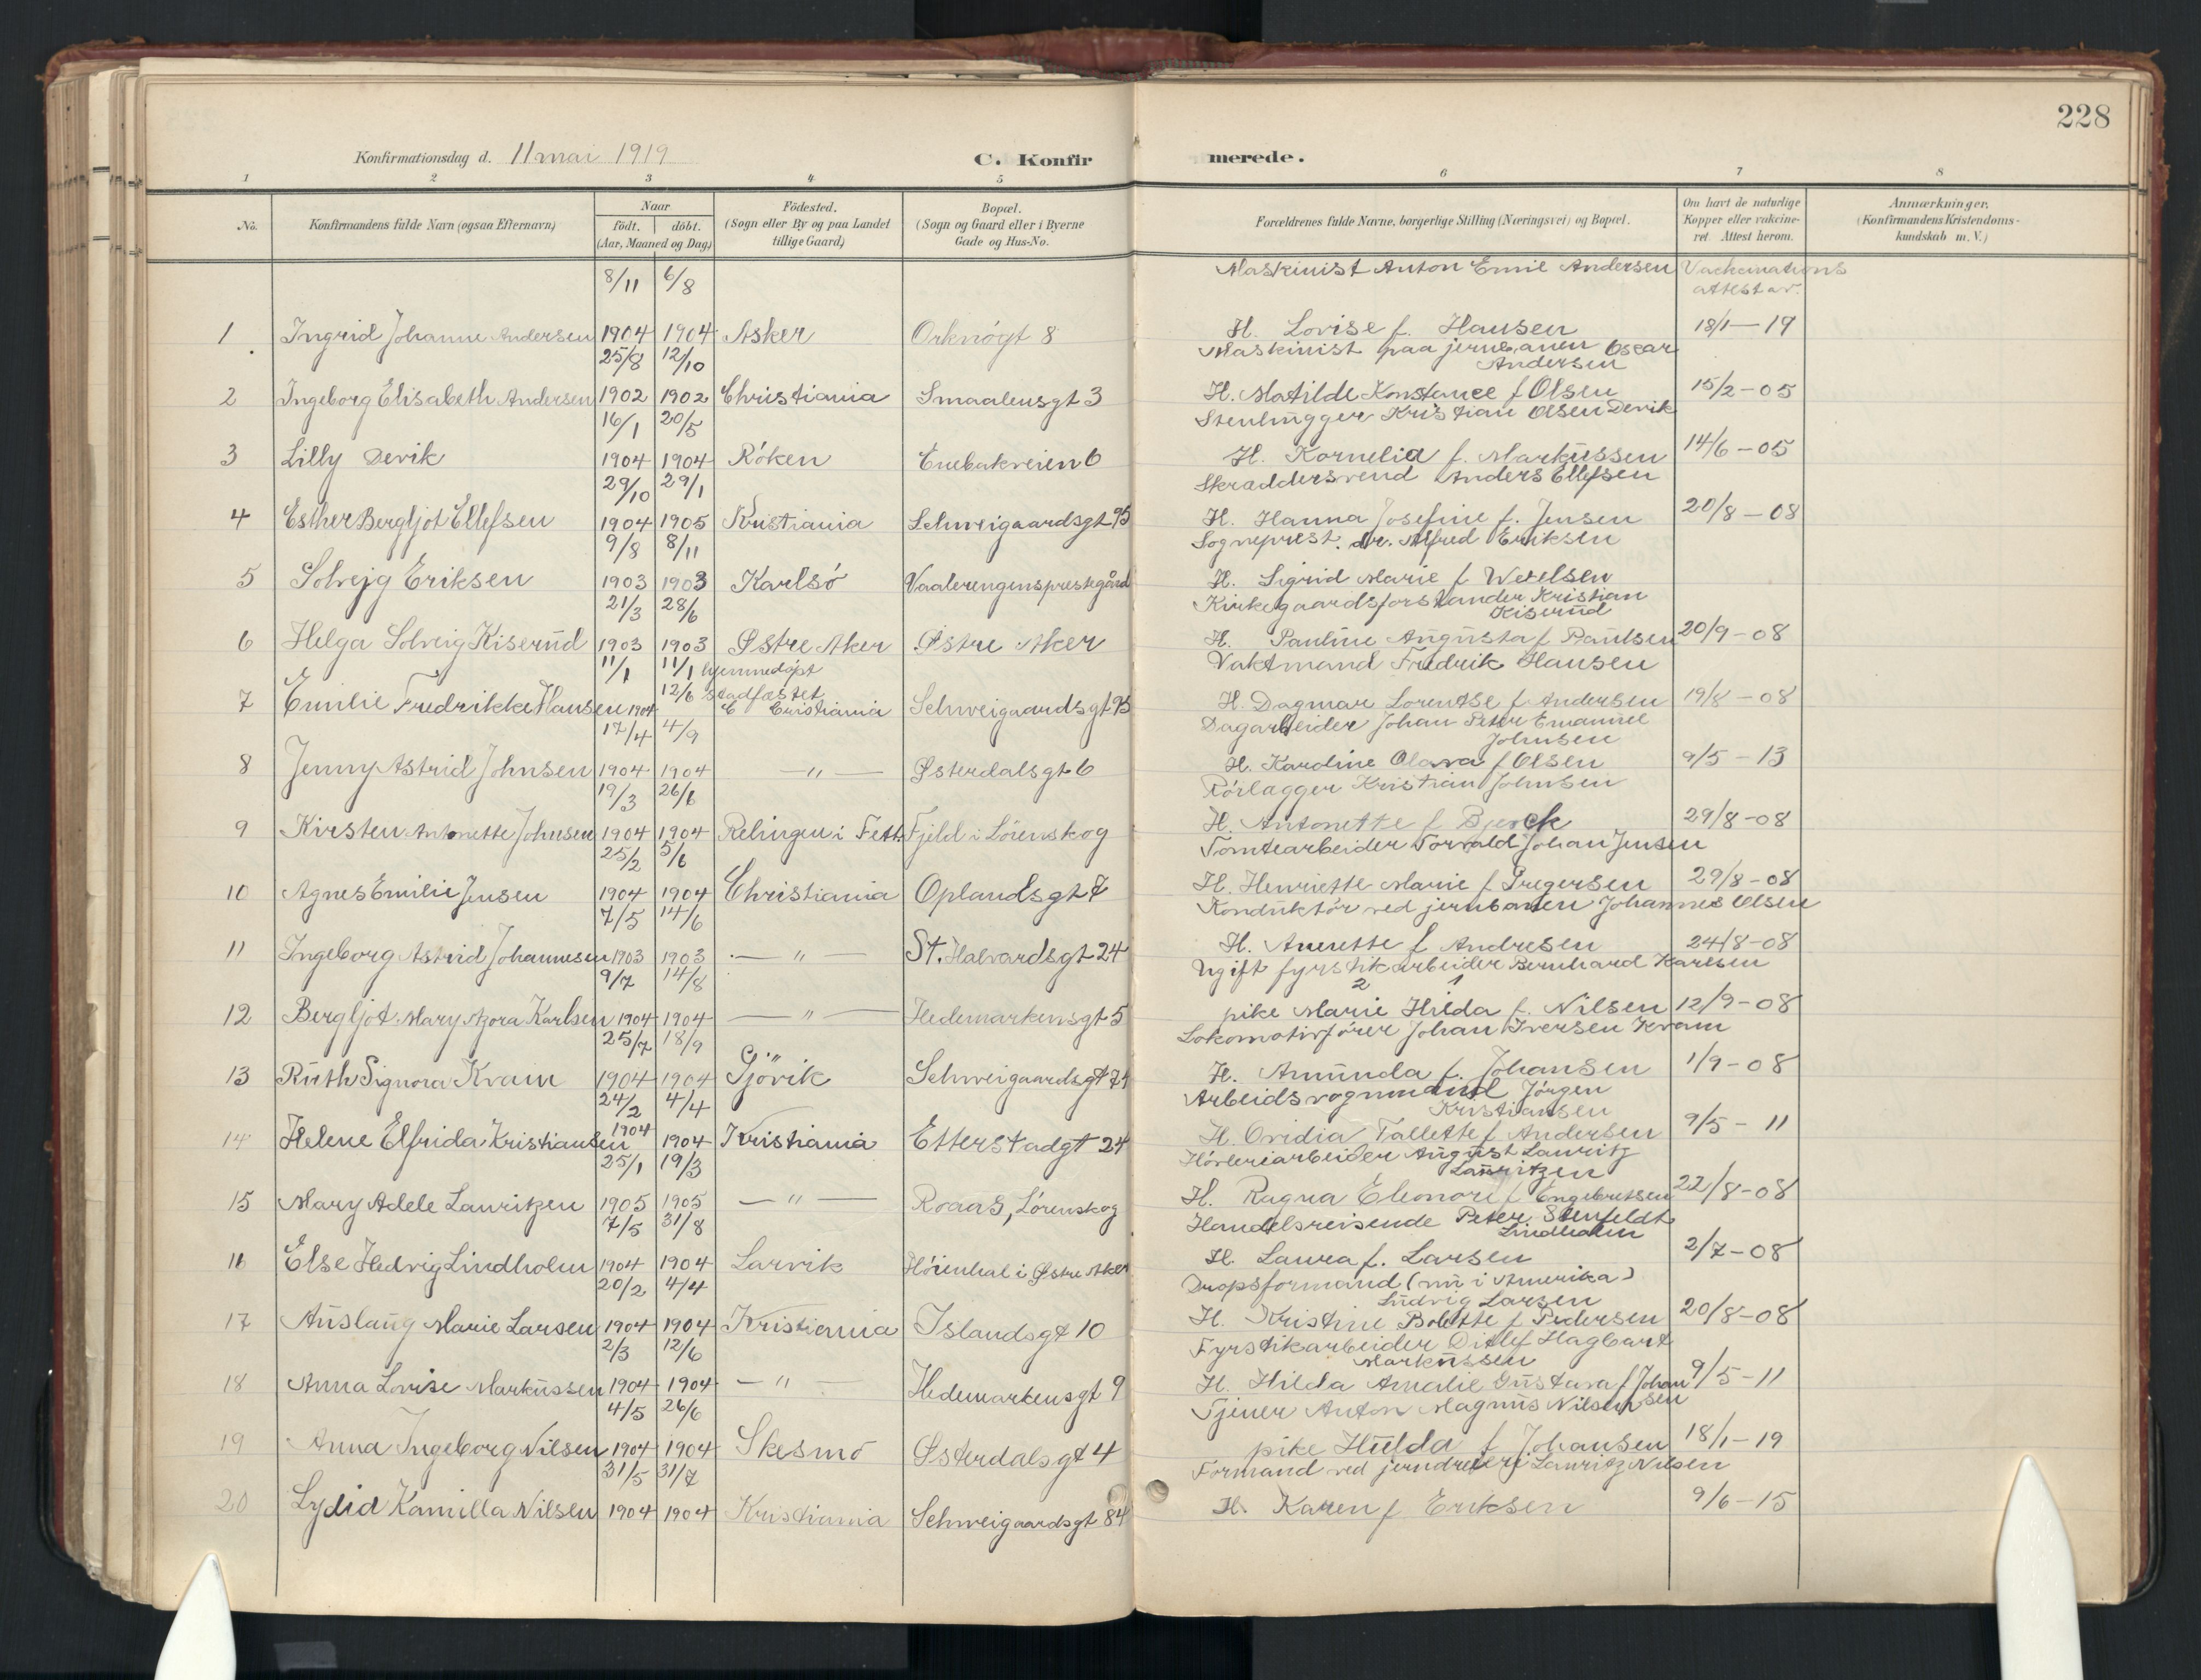 228
Konfirmationsdag d. 11 mai 1919
C. Konfirmerede.
1 2 3 4 5 6 7 8
No.
Konfirmandens fulde Navn (ogsaa Efternavn)
Naar
födt. döbt.
(Aar, Maaned og Dag)
Födested.
(Sogn eller By og paa Landet
tillige Gaard)
Bopæl.
(Sogn og Gaard eller i Byerne
Gade og Hus-No.
Forældrenes fulde Navne, borgerlige Stilling (Næringsvei) og Bopæl.
Om havt de naturlige
Kopper eller vakcine-
ret. Attest herom.
Anmærkninger.
(Konfirmandens Kristendoms-
kundskab m. V.)
8/11 6/8 Maskinist Anton Emil Andersen Vackcinations
attest av.
1 Ingrid Johanne Andersen 1904 1904 Asker Orknöygt 8 H. Lovise f. Hansen 18/1-19
25/8 12/10 Maskinist paa jernbanen Oscar
Andersen
2 Ingeborg Elisabeth Andersen 1902 1902 Christiania Smaalensgt 3 H. Matilde Konstance f Olsen 15/2-05
16/1 20/5 Stenhugger Kristian Olsen Devik
3 Lilly Devik 1904 1904 Röken Enebakveien 6 H. Kornelia f. Markussen 14/6-05
29/10 29/1 Skraddersvend Anders Ellefsen
4 Esther Bergljot Ellefsen 1904 1905 Kristiania Schweigaardsgt 95 H. Hanna Josefine f. Jensen 20/8-08
9/8 8/11 Sogneprest. dr. Alfred Eriksen
5 Solvejg Eriksen 1903 1903 Karlsö Vaalerengens prestegård H. Sigrid Marie f Wetelsen
21/3 28/6 Kirkegaardsforstander Kristian
Kiserud
6 Helga Solveig Kiserud 1903 1903 Østre Aker Østre Aker H. Pauline Augusta f Paulsen 20/9-08
11/1 11/1 hjemmedöpt Vaktmand Fredrik Hansen
12/6 stadfæstet
7 Emilie Fredrikke Hansen 1904 Cristiania Schweigaardsgt 95 H. Dagmar Lorentse f Andersen 19/8-08
17/4 4/9 Dagarbeider Johan Peter Emanuel
Johnsen
8 Jenny Astrid Johnsen 1904 1904 —"— Østerdalsgt 6 H. Karoline Olava f Olsen 9/5-13
19/3 26/6 Rörlagger Kristian Johnsen
9 Kirsten Antonette Johnsen 1904 1904 Relingen i Fett. Fjeld i Lörenskog H. Antonette f Bjerck 29/8-08
25/2 5/6 Tomtearbeider Torvald Johan Jensen
10 Agnes Emilie Jensen 1904 1904 Christiania Oplandsgt 7 H. Henriette Marie f Gregersen 29/8-08
7/5 14/6 Konduktör ved jernbanen Johannes Olsen
11 Ingeborg Astrid Johannesen 1903 1903 —"— St. Halvardsgt 24 H. Anerette f Andresen 24/8-08
9/7 14/8 Ugift fyrstikarbeider Bernhard Karlsen
2 1
12 Bergljot Mary Azora Karlsen 1904 1904 —"— Hedemarkensgt 5 pike Marie Hilda f. Nilsen 12/9-08
25/7 18/9 Lokomotivförer Johan Iversen Kvam
13 Ruth Signora Kvam 1904 1904 Gjövik Schweigaardsgt 74 H. Amunda f. Johansen 1/9-08
24/2 4/4 Arbeidsvognmand Jörgen
Kristiansen
14 Helene Elfrida Kristiansen 1904 1904 Kristiania Etterstadgt 24 H. Ovidia Tallette f Andersen 9/5-11
25/1 19/3 Hövleriarbeider August Lauritz
Lauritzen
15 Mary Adele Lauritzen 1905 1905 —"— Roaas, Lörenskog H. Ragna Eleonore f Engebretsen 22/8-08
7/5 31/8 Handelsreisende Peter Stenfeldt
Lindholm
16 Else Hedvig Lindholm 1904 1904 Larvik Höienhal i Østre Aker H. Laura f. Larsen 2/7-08
20/2 4/4 Dropsformand (nu i Amerika)
Ludvig Larsen
17 Auslaug Marie Larsen 1904 1904 Kristiania Islandsgt 10 H. Kristine Bolette f Pedersen 20/8-08
2/3 12/6 Fyrstikarbeider Ditlef Hagbart
Markussen
18 Anna Lovise Markussen 1904 1904 —"— Hedemarkensgt 9 H. Hilda Amalie Gustava f Johansen 9/5-11
4/5 26/6 Tjener Anton Magnus Nilsen
19 Anna Ingeborg Nilsen 1904 1904 Skesmo Østerdalsgt 4 pike Hulda f Johansen 18/1-19
31/5 31/7 Formand ved jerndreieri Lauritz Nilsen
20 Lydia Kamilla Nilsen 1904 1904 Kristiania Schweigaardsgt 84 H. Karen f Eriksen 9/6-15